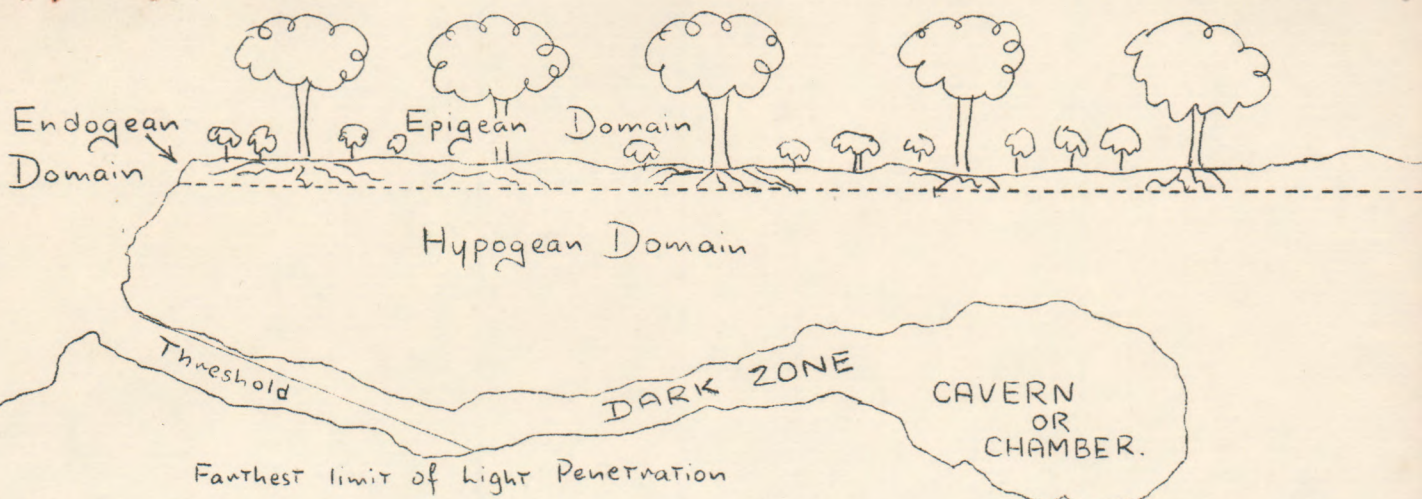 Endogean
Domain
Epigean Domain
Hypogean Domain
Threshold
DARK ZONE
CAVERN
OR
CHAMBER.
Farthest limit of Light Penetration